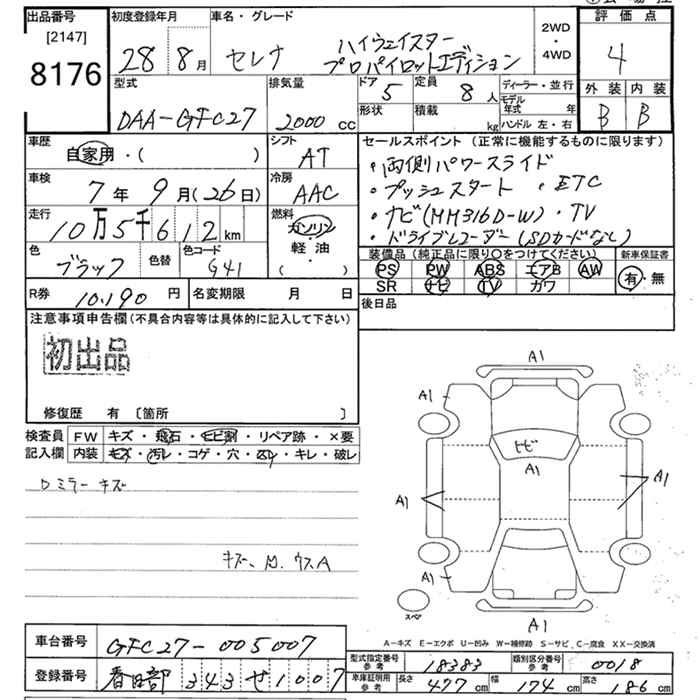 出品番号 初度登録年月 車名・グレード 2WD・4WD 評価点
[2147]
8176 28年 8月 セレナ ハイウェイスター プロパイロットエディション 4
型式 排気量 ドア 5 定員 8人 ディーラー・並行 外装 内装
DAA-GFC27 2000 cc 形状 積載 kg モデル年式 年 B B
ハンドル 左・右
車歴 自家用・( ) シフト AT セールスポイント (正常に機能するものに限ります)
・両側パワースライド
車検 7年 9月 (26日) 冷房 AAC ・プッシュスタート ・ETC
走行 10万5千612km 燃料 ガソリン・軽油・( ) ・ナビ(MM316D-W)・TV
・ドライブレコーダー(SDカードなし)
色 ブラック 色替 色コード G41 装備品 (純正品に限り○をつけてください) 新車保証書
PS PW ABS エアB AW 有・無
R券 10,190円 名変期限 月 日 SR ナビ TV ガワ
注意事項申告欄 (不具合内容等は具体的に記入して下さい) 後日品
初出品
修復歴 有 〔箇所 〕
検査員 FW キズ・飛石・ヒビ割・リペア跡・×要
記入欄 内装 キズ・汚レ・コゲ・穴・スレ・キレ・破レ
Dミラーキズ
ウスA
A1
A1 A1
ヒビ
A1
A1 A1
A1
A1
スペア
A-キズ E-エクボ U-凹み W-補修跡 S-サビ C-腐食 XX-交換済
車台番号 GFC27-005007 型式指定番号 参考 18383 類別区分番号 参考 0018
登録番号 春日部 343 せ1007 車庫証明用 参考 長さ 477cm 幅 174cm 高さ 186cm